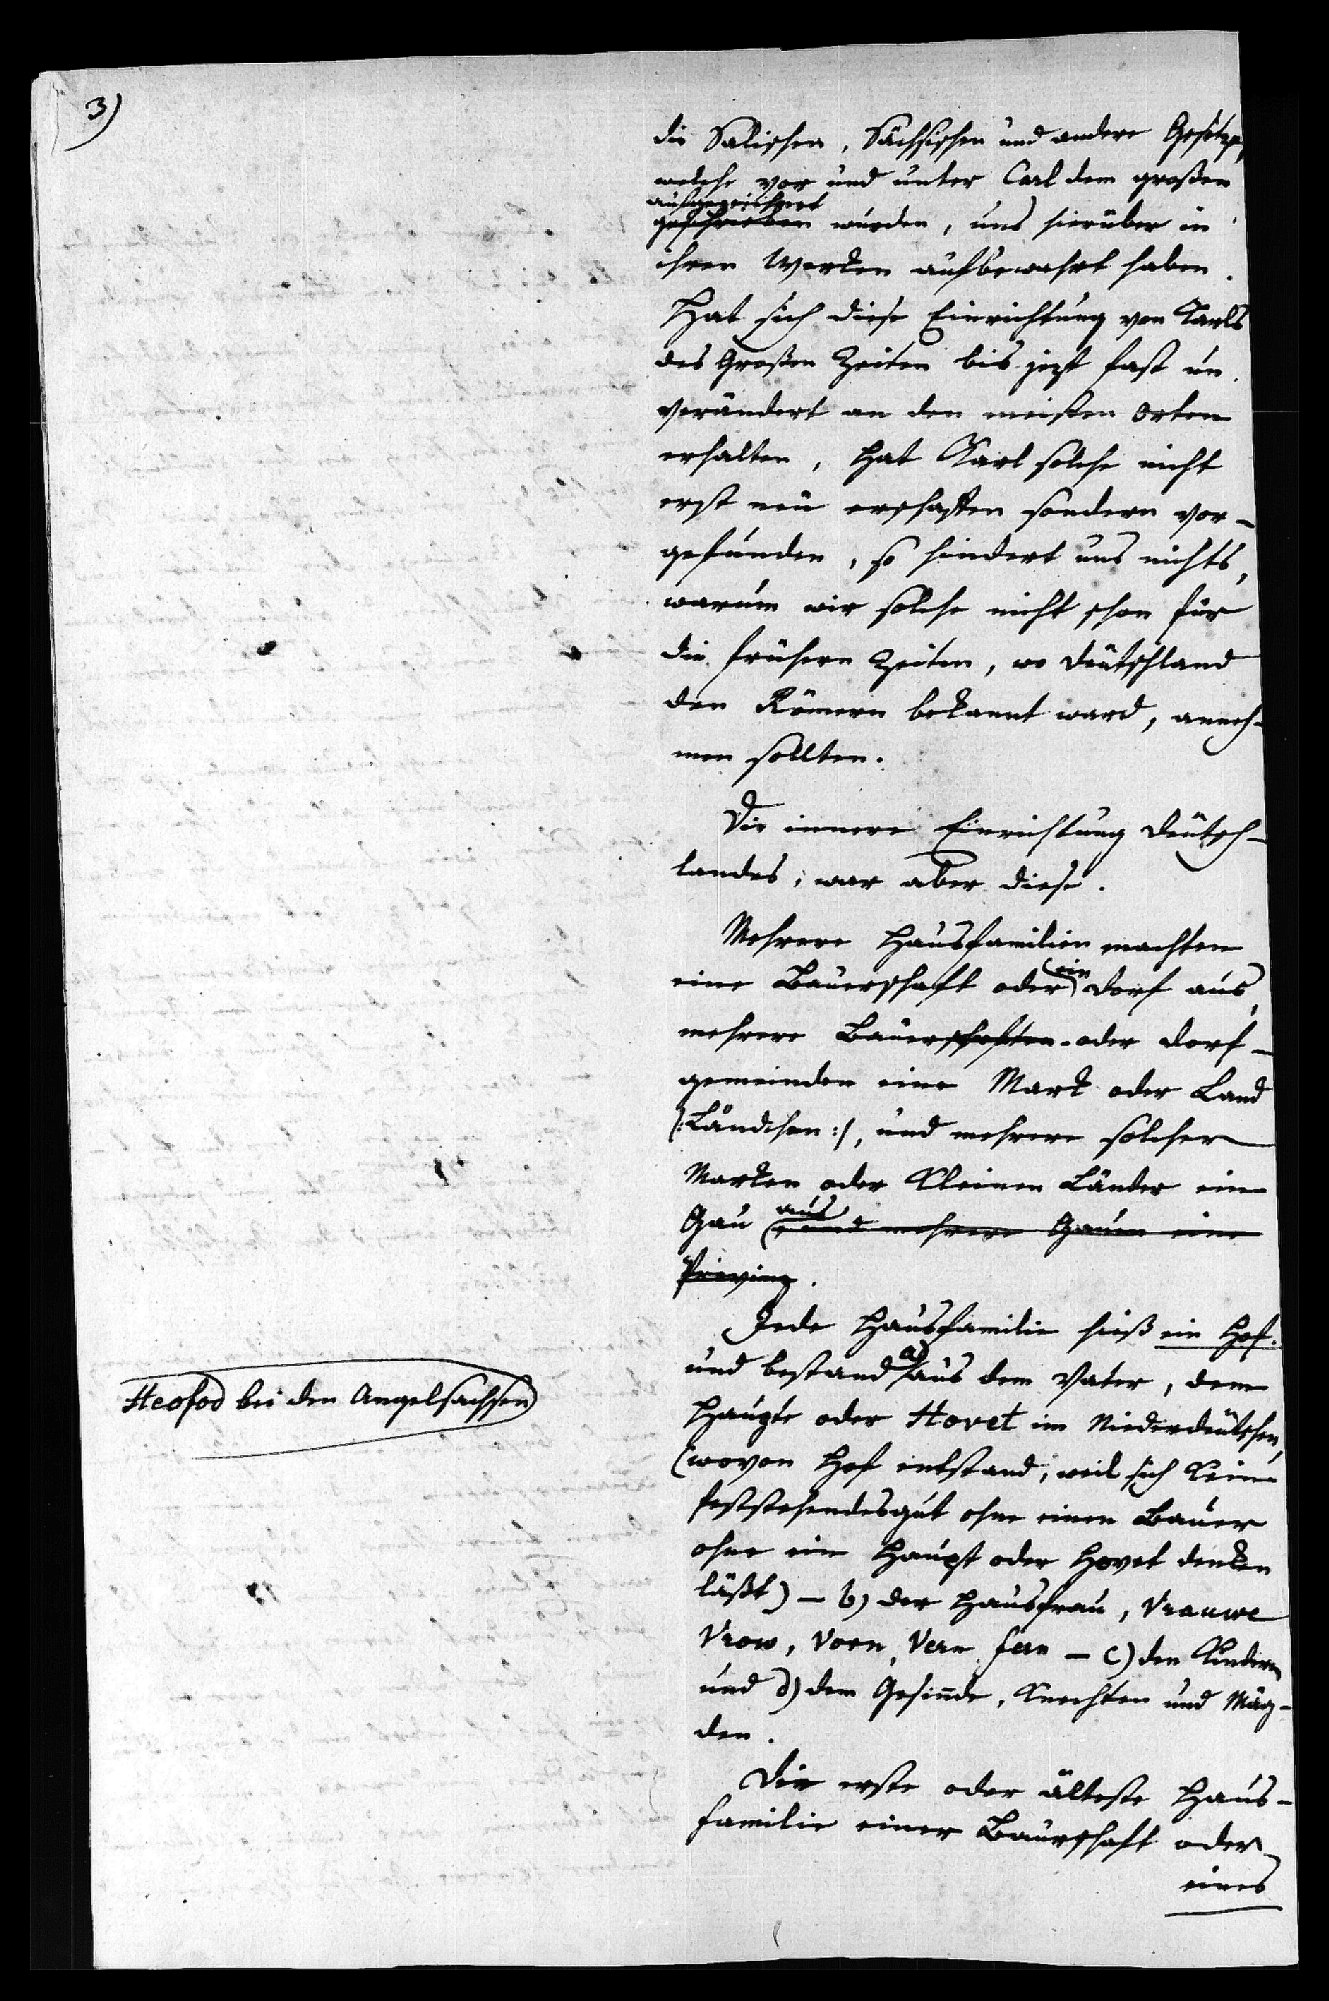 3)
die Salischen, Sächsischen und andere Gesetze,
welche vor und unter Carl dem großen
aufgezeichnet
geschrieben wurden, uns hierüber in
ihren Werken aufbewahrt haben.
Hat sich diese Einrichtung von Karls
des Großen Zeiten bis jezt fast un
verändert an den meisten Orten
erhalten, hat Karl solche nicht
erst neu erschaffen sondern vor-
gefunden, so hindert uns nichts,
warum wir solche nicht schon für
die frühern Zeiten, wo Deutschland
den Römern bekannt ward, anneh-
men sollten.
Die innere Einrichtung Deutsch-
landes, war aber diese.
Mehrere Hausfamilien machten
eine Bauerschaft oder ein Dorf aus,
mehrere Bauerschaften oder Dorf-
gemeinden eine Mark oder Land
/:Ländchen:/, und mehrere solcher
Marken oder kleinen Länder ein
Gau aus, und mehrere Gauen eine
Provinz.
Jede Hausfamilie hieß ein Hof.
und bestand a) aus dem Vater, dem
Heofod bei den Angelsachsen
Haupte oder Hovet im Niederdeutschen,
(wovon Hof entstand, weil sich kein
feststehendesgut ohne einen Bauer
ohne ein Haupt oder Hovet denken
läßt) – b) der Hausfrau, Vrauwe
Vrow, Vorn, Vern fern – c) den Kindern
und d) dem Gesinde, Knechten und Mäg-
den.
Die erste oder älteste Haus-
familie einer Baurschaft oder
eines